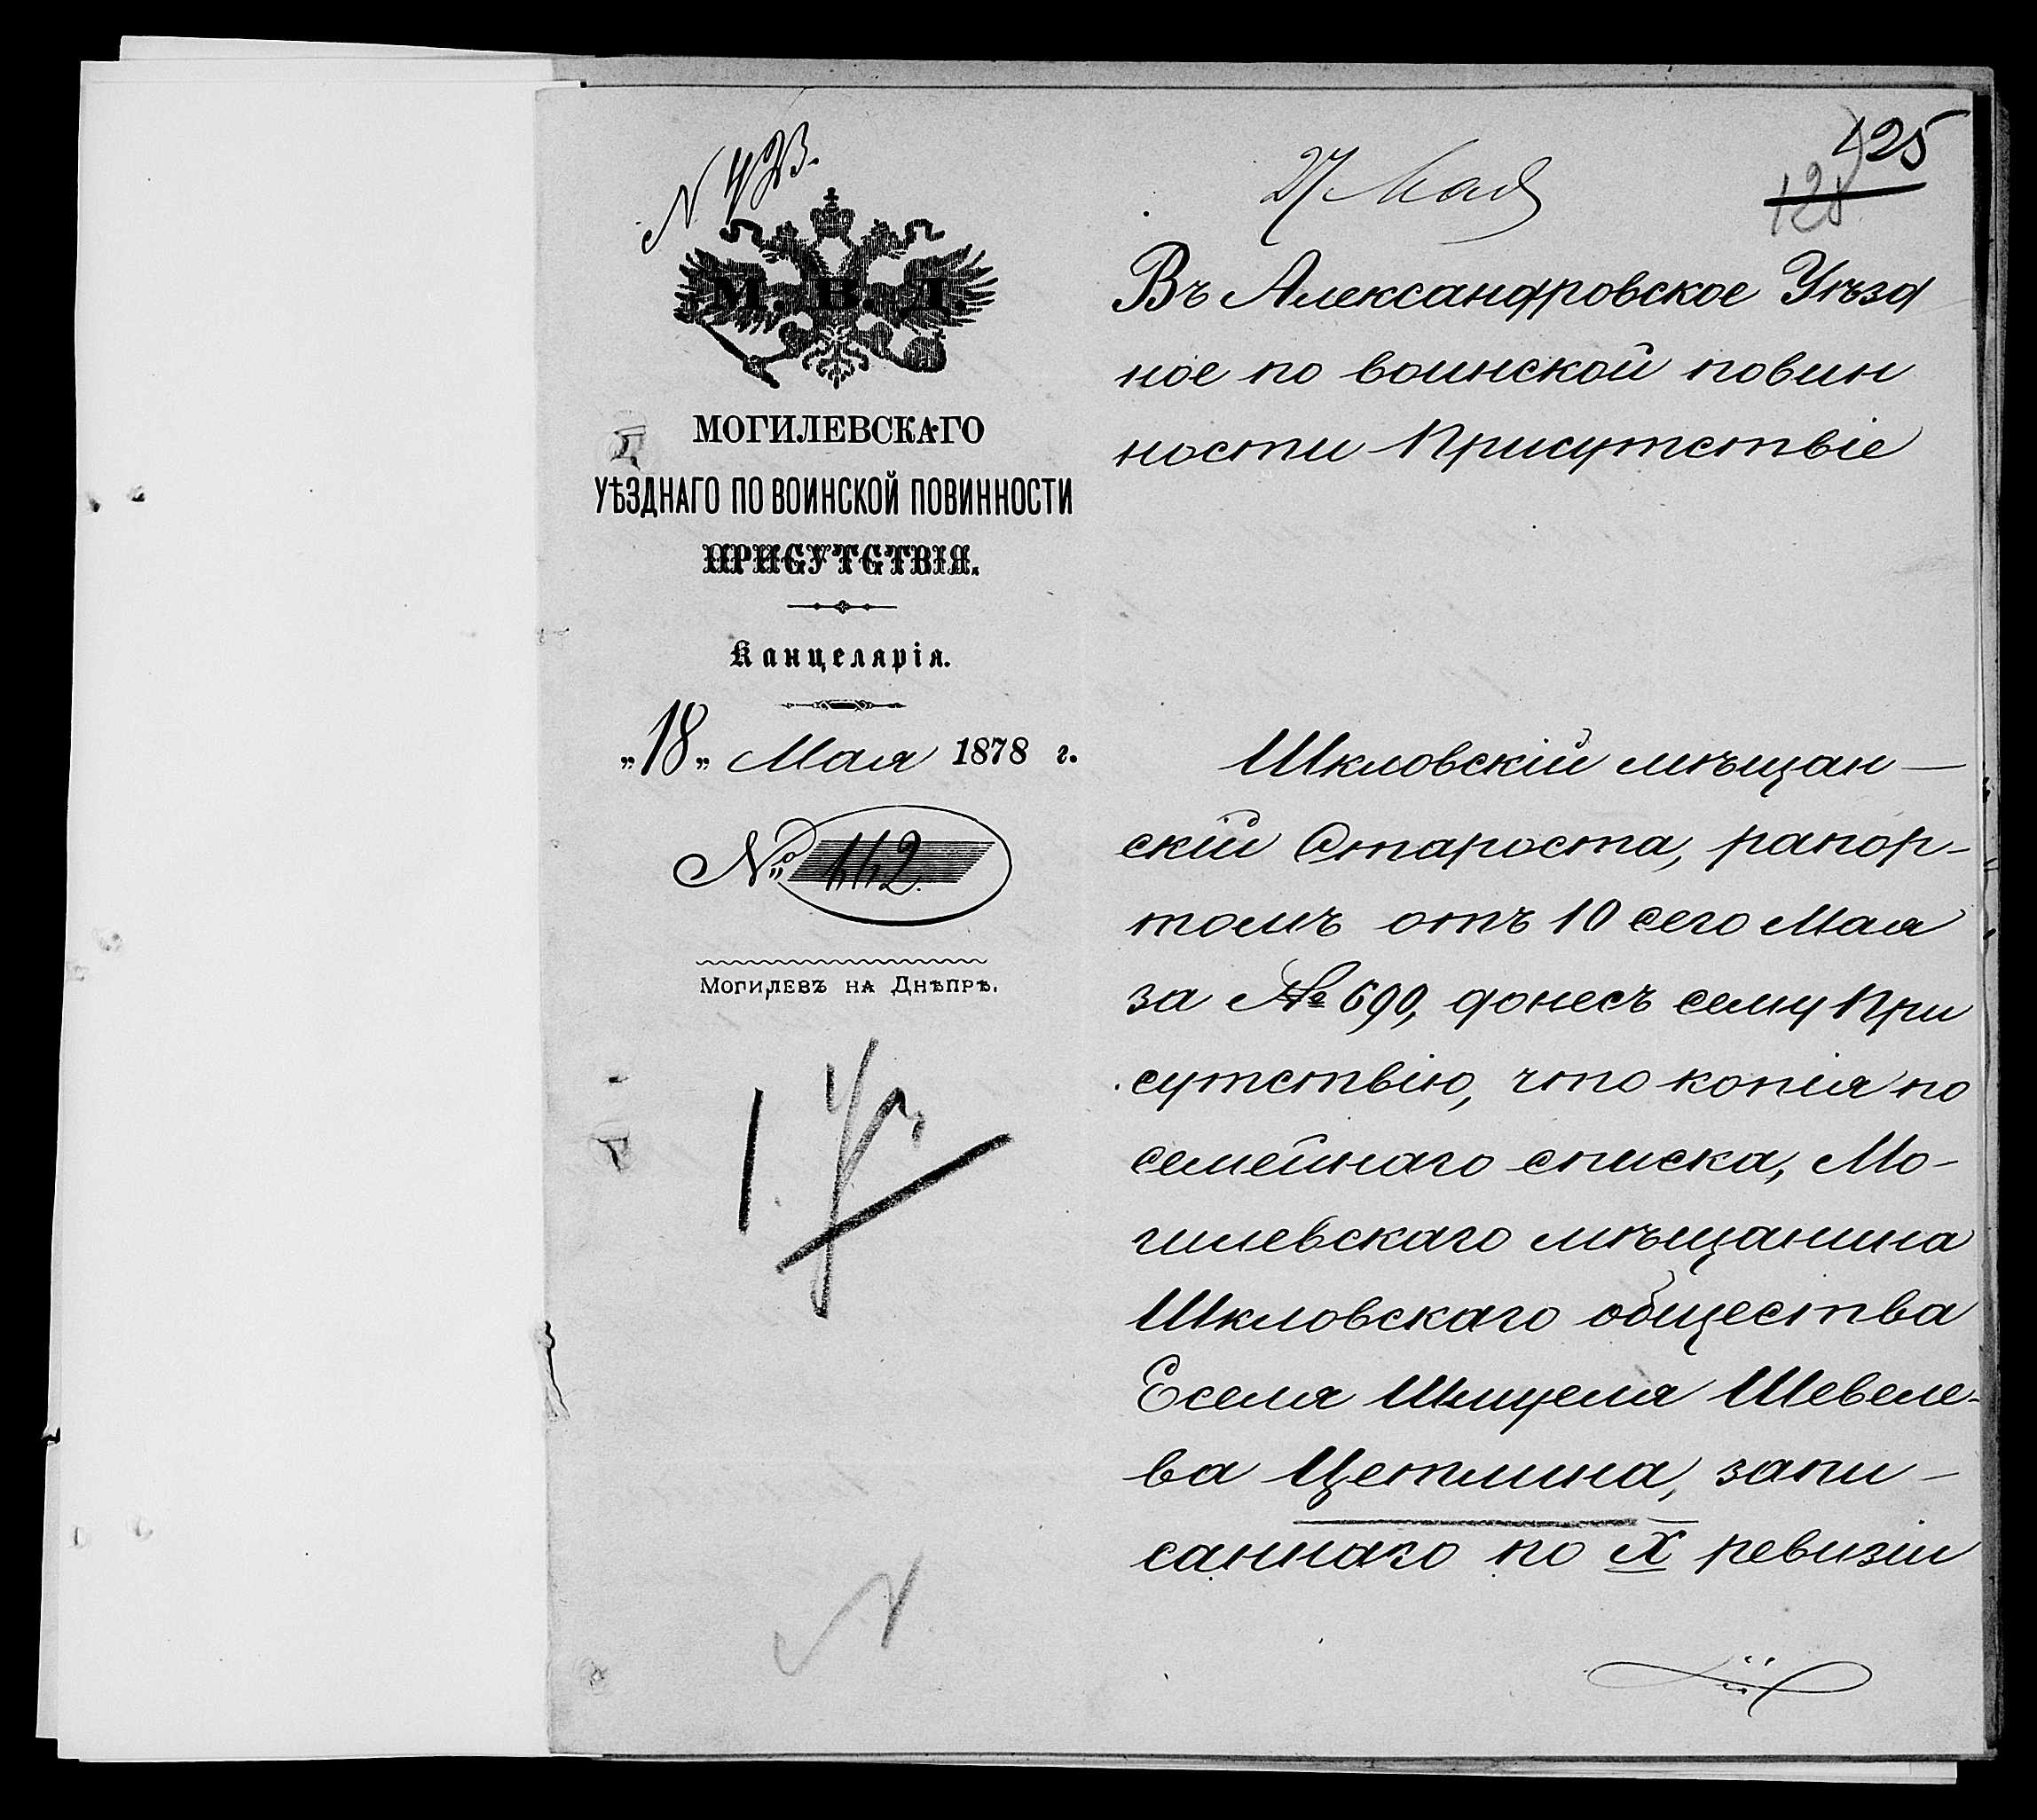 N 423.
М. В. Д.
МОГИЛЕВСКАГО
УѢЗДНАГО ПО ВОИНСКОЙ ПОВИННОСТИ
ПРИСУТСТВІЯ.
Канцелярія.
„18„ Мая 1878 г.
№ 442.
Могилевъ на Днѣпрѣ.
27 Мая
125
125
Въ Александровское Уѣзд
ное по воинской повин
ности Присутствіе
Шкловскій мѣщан—
скій Староста, рапор-
томъ отъ 10 сего Мая
за № 690, донесъ сему При
сутствію, что копія по
семейнаго списка, Мо-
гилевскаго мѣщанина
Шкловскаго общества
Еселя Шмуеля Шевеле-
ва Цетлина, запи—
саннаго по X ревизіи